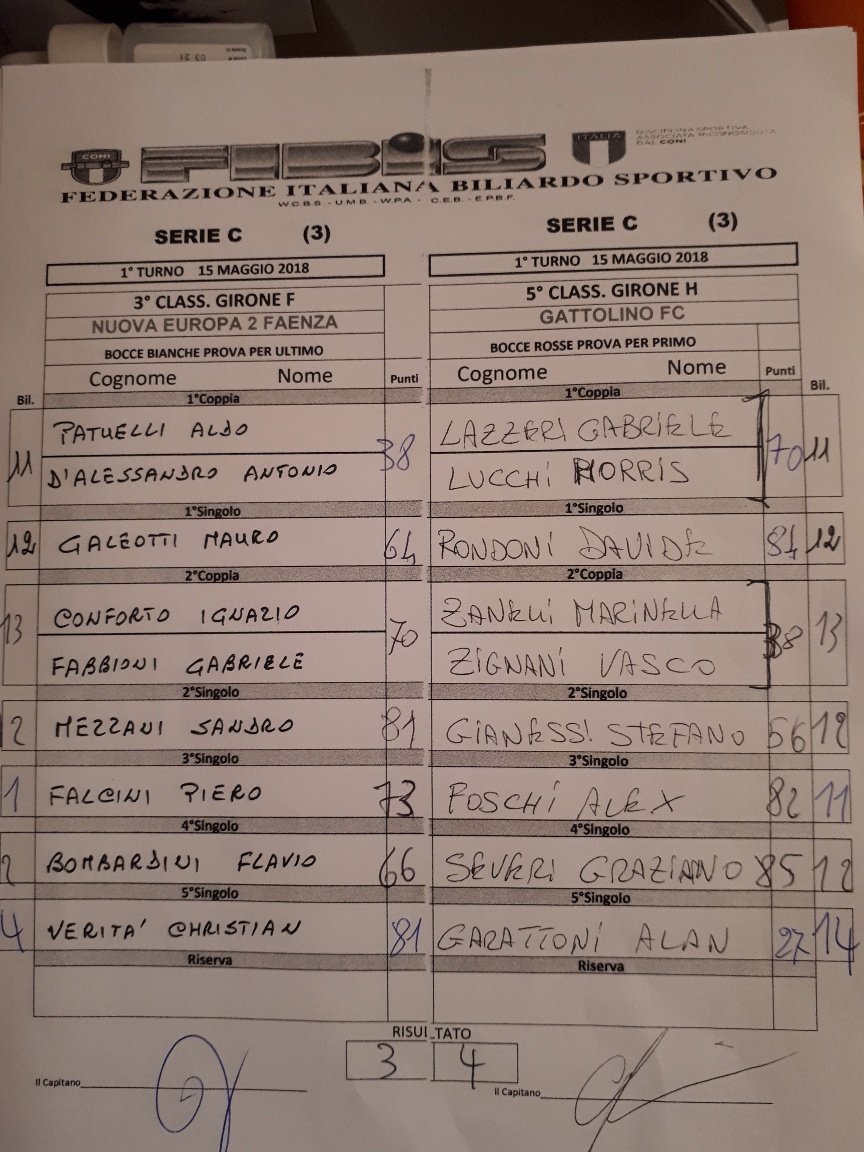 03 21
CONI FIBIS ITALIA DISCIPLINA SPORTIVA
ASSOCIATA RICONOSCIUTA
DAL CONI
FEDERAZIONE ITALIANA BILIARDO SPORTIVO
W.C.B.S. - U.M.B. - W.P.A. - C.E.B. - E.P.B.F.
SERIE C (3) SERIE C (3)
1° TURNO 15 MAGGIO 2018 1° TURNO 15 MAGGIO 2018
3° CLASS. GIRONE F 5° CLASS. GIRONE H
NUOVA EUROPA 2 FAENZA GATTOLINO FC
BOCCE BIANCHE PROVA PER ULTIMO BOCCE ROSSE PROVA PER PRIMO
Cognome Nome Punti Cognome Nome Punti
Bil. 1°Coppia 1°Coppia Bil.
PATUELLI ALDO LAZZERI GABRIELE
11 38 70 11
D'ALESSANDRO ANTONIO LUCCHI NORRIS
1°Singolo 1°Singolo
12 GALEOTTI MAURO 64 RONDONI DAVIDE 84 12
2°Coppia 2°Coppia
CONFORTO IGNAZIO ZANELLI MARINELLA
13 70 38 13
FABBIONI GABRIELE ZIGNANI VASCO
2°Singolo 2°Singolo
2 MEZZANI SANDRO 81 GIANESSI STEFANO 56 12
3°Singolo 3°Singolo
1 FALCINI PIERO 73 FOSCHI ALEX 82 11
4°Singolo 4°Singolo
2 BOMBARDINI FLAVIO 66 SEVERI GRAZIANO 85 12
5°Singolo 5°Singolo
4 VERITA' CHRISTIAN 81 GARATTONI ALAN 27 14
Riserva Riserva
RISULTATO
3 4
Il Capitano Il Capitano